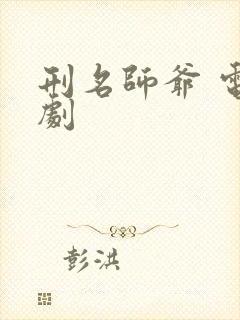 刑名師爺 電
劇
彭洪